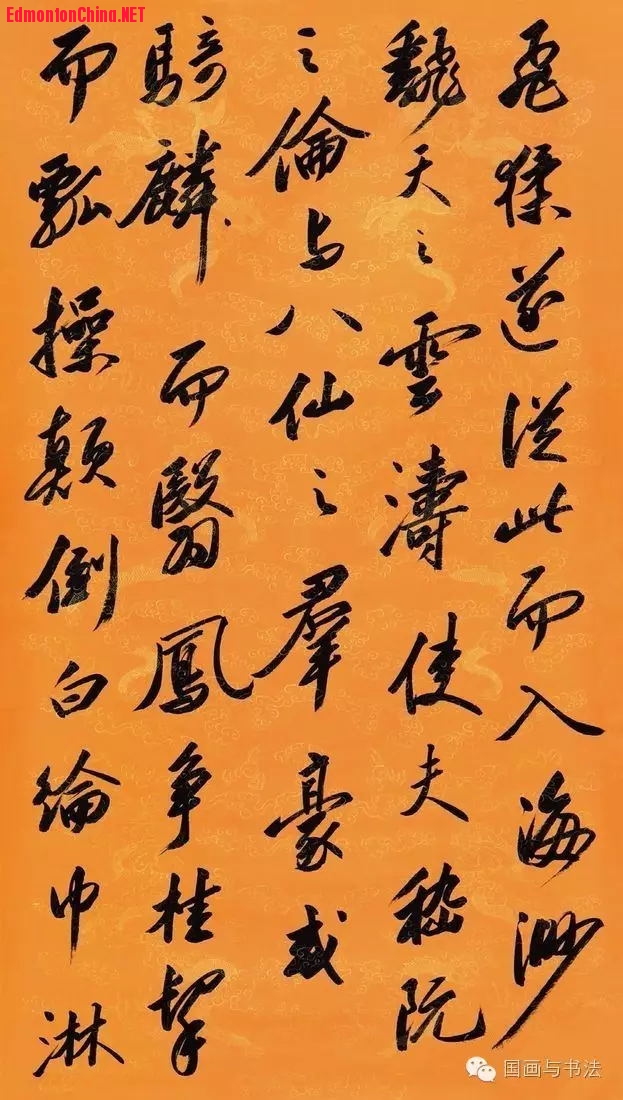 EdmontonChina.NET
飛猱遂從此而入海渺
飜天之雲濤使夫嵇阮
之倫与八仙之羣豪或
騎麟而翳鳳争榼挈
而瓢操顛倒白綸巾淋
国画与书法